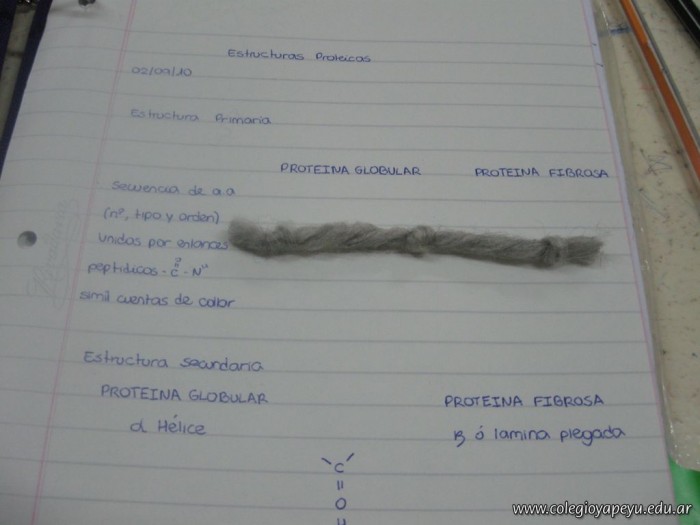 Estructuras Proteicas
02/09/10
Estructura Primaria
PROTEINA GLOBULAR PROTEINA FIBROSA
secuencia de a.a
(nº, tipo y orden)
unidos por enlaces
peptidicos - C - N
simil cuentas de collar
Estructura secundaria
PROTEINA GLOBULAR PROTEINA FIBROSA
α Hélice β ó lamina plegada
C
O
www.colegioyapeyu.edu.ar